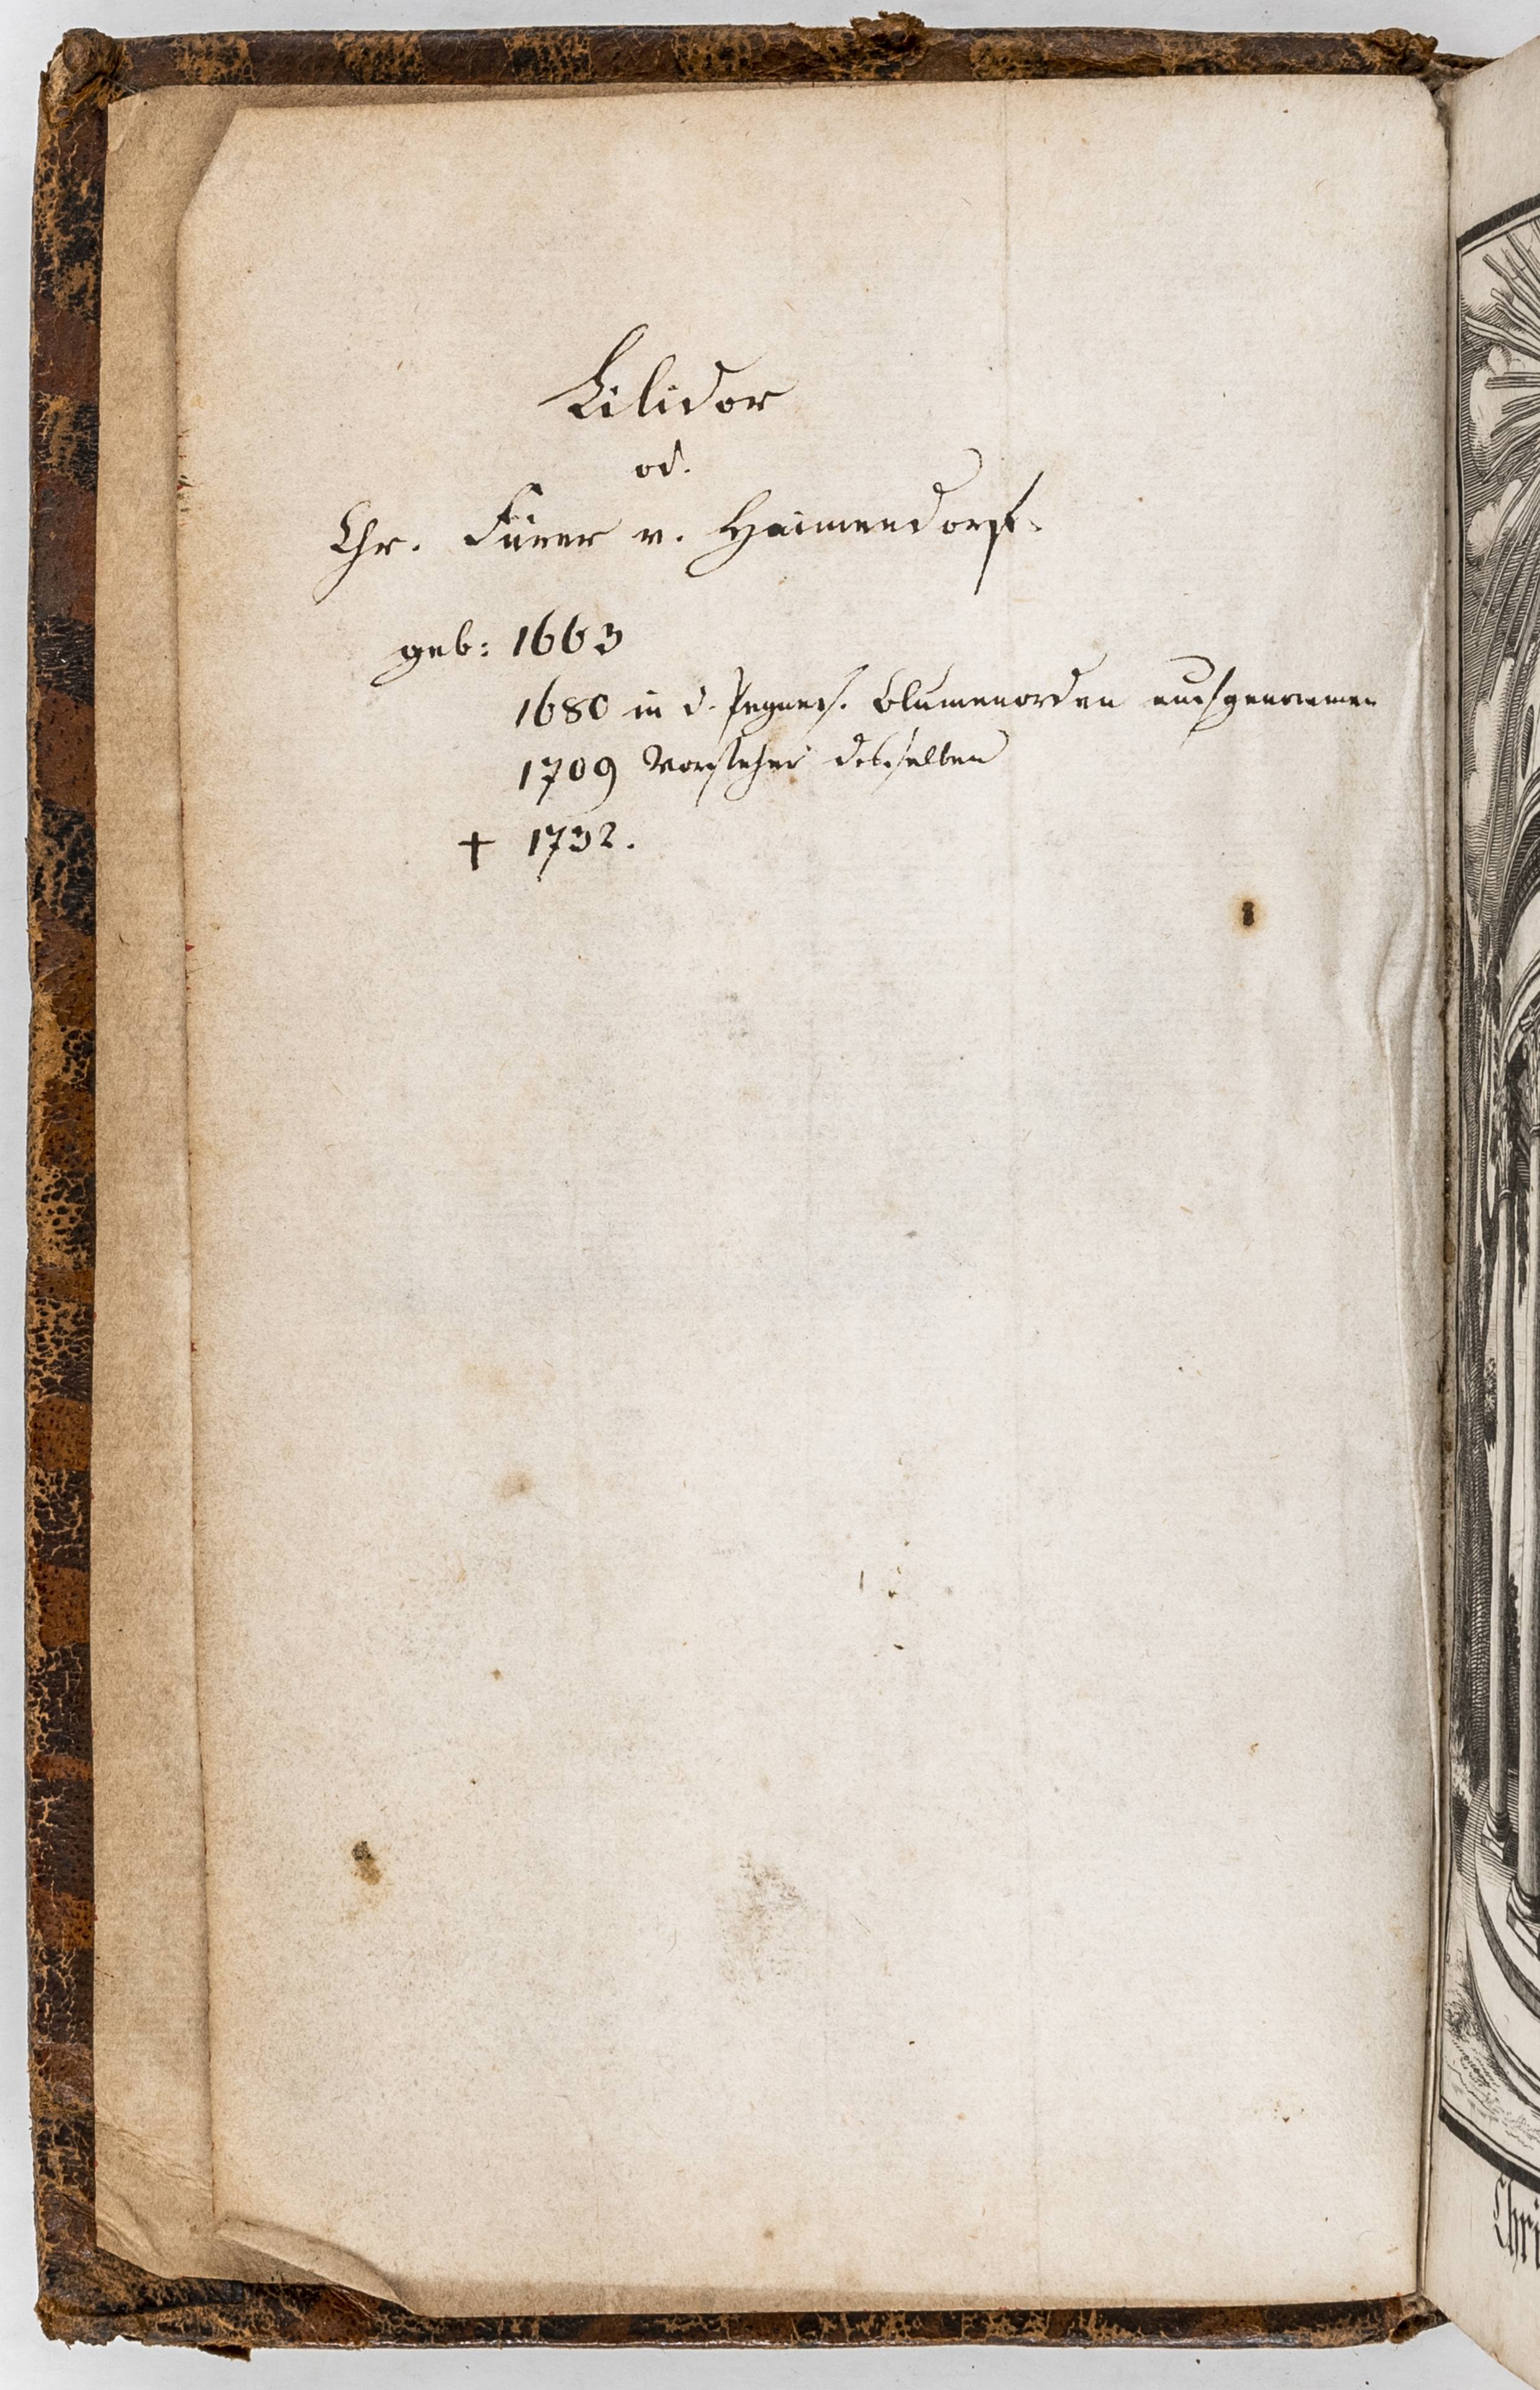 Lilidor
od.
Chr. Fürer v. Haimendorf.
geb: 1663
1680 in d. Pegnes. Blumenorden aufgenommen
1709 Vorsteher desselben
† 1732.
Chri